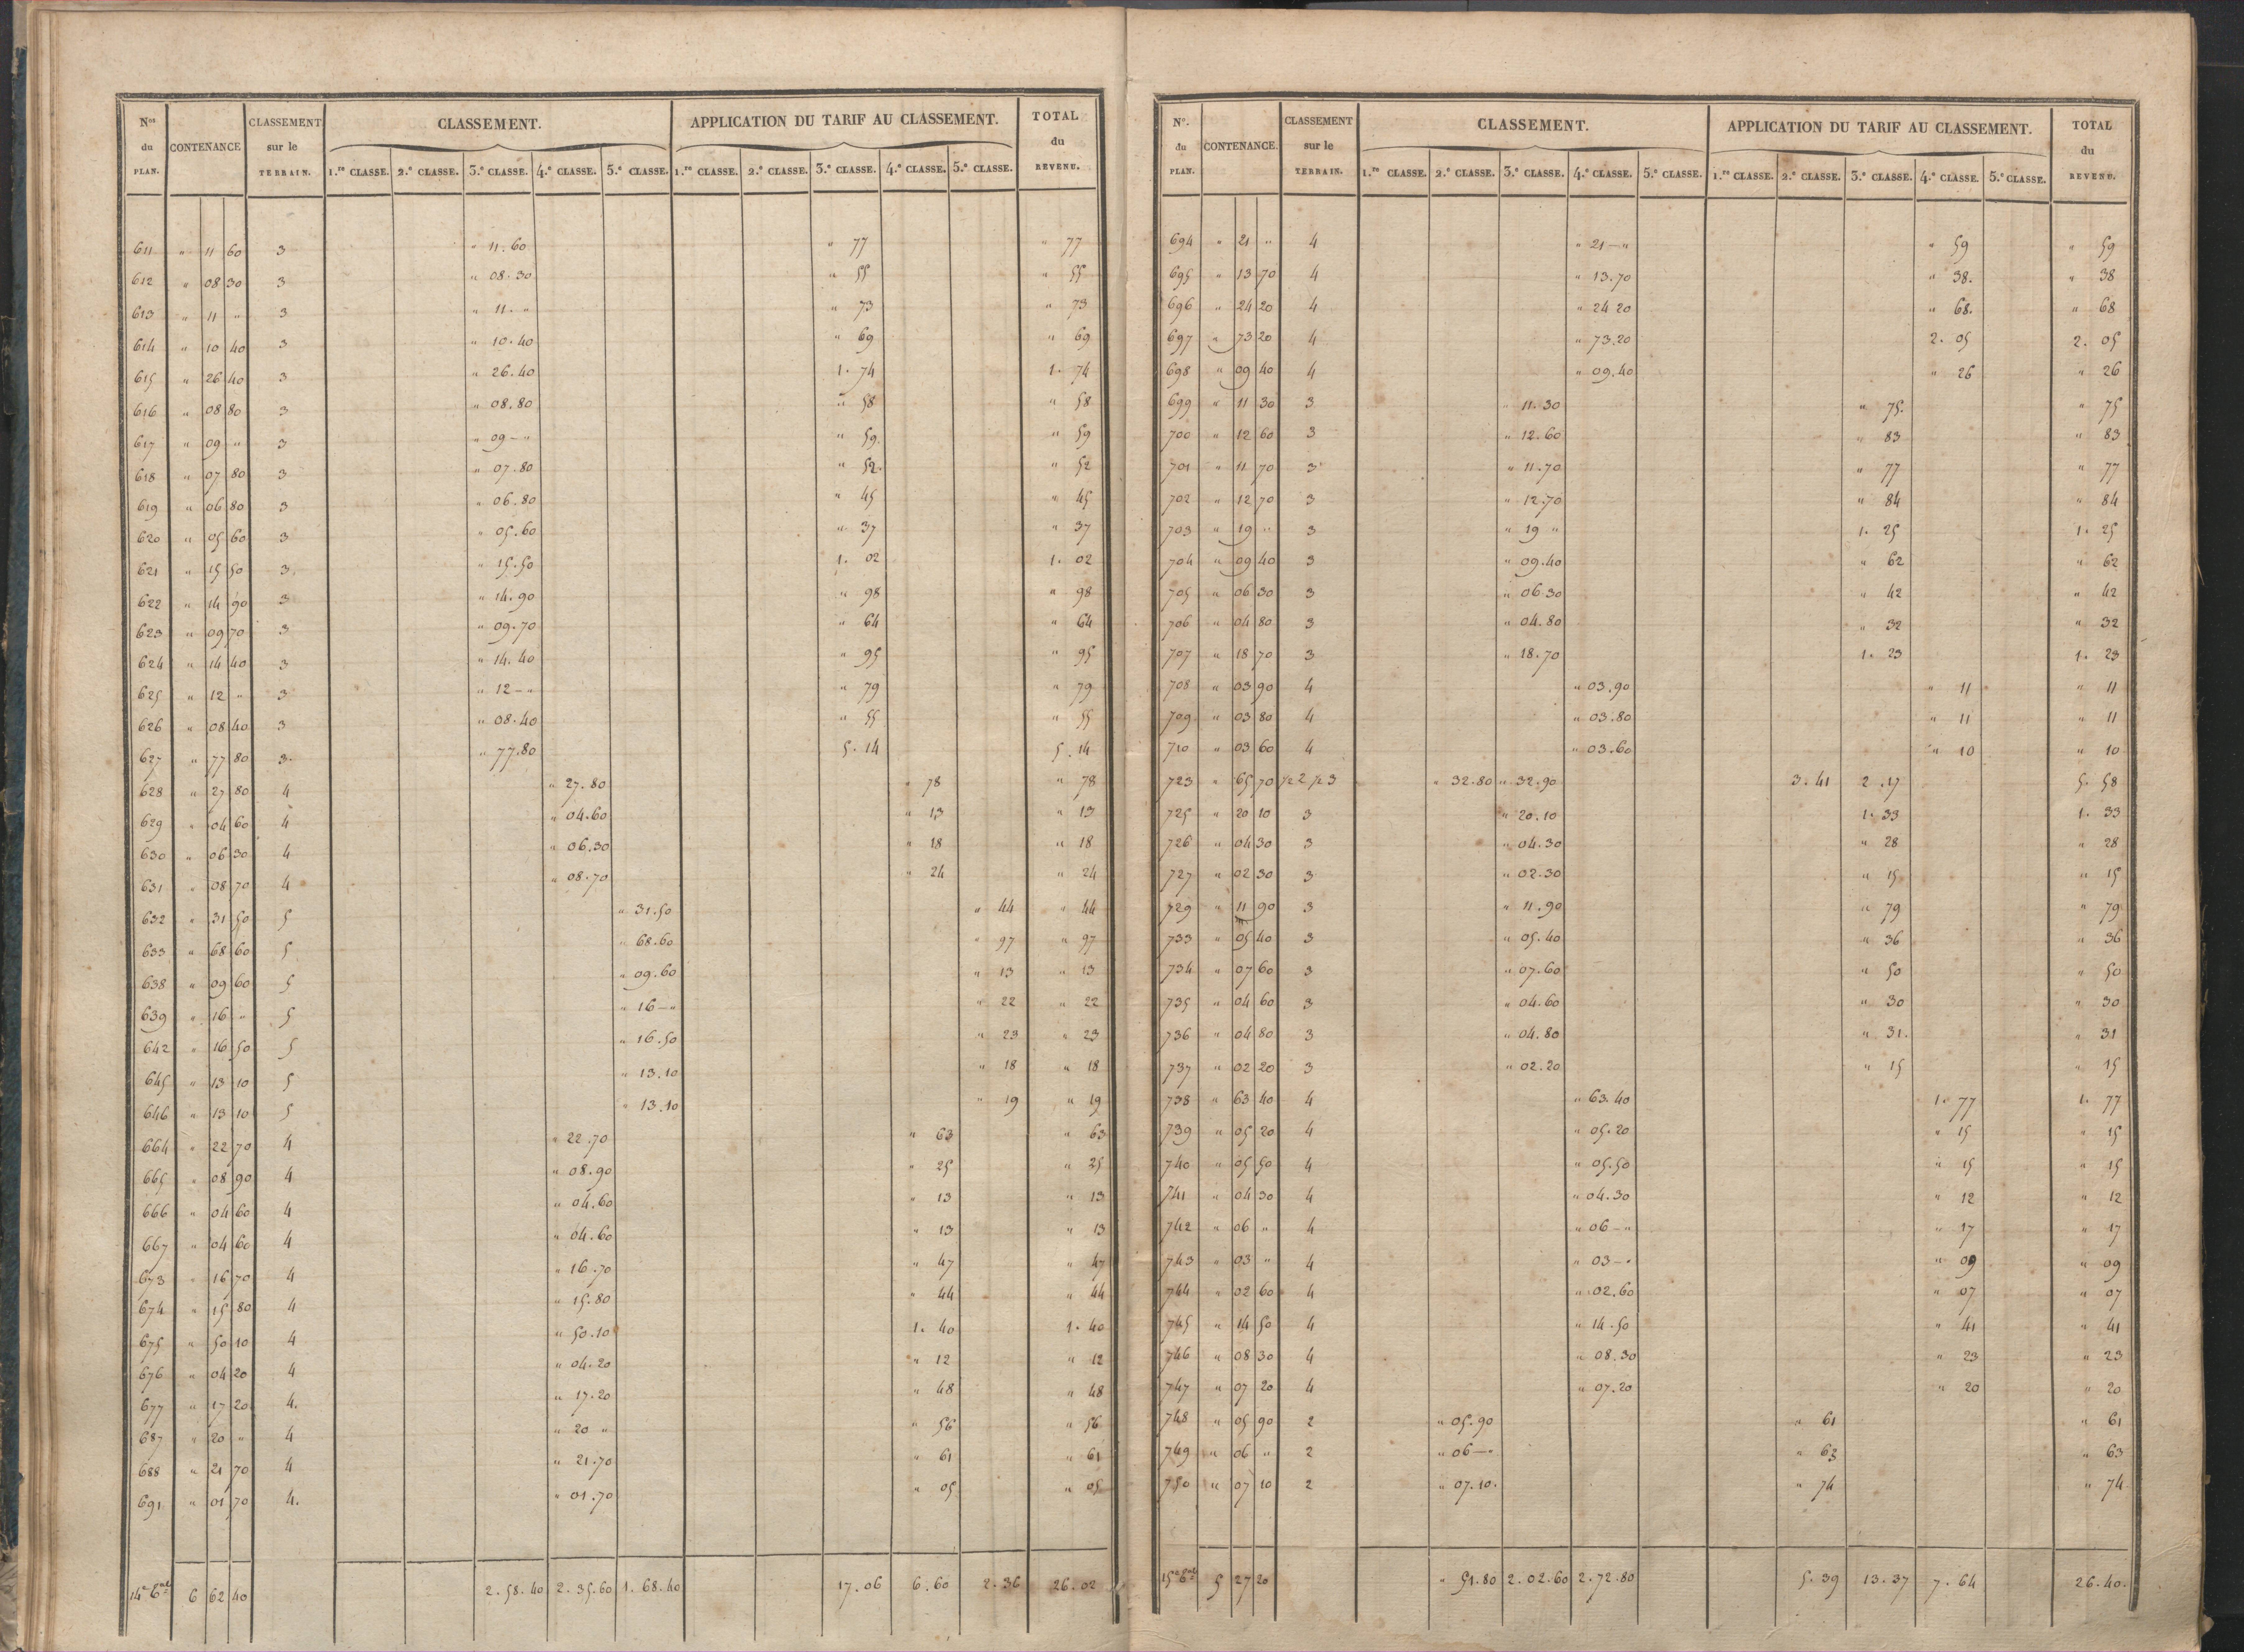 Nos du PLAN. CONTENANCE CLASSEMENT sur le TERRAIN. CLASSEMENT. APPLICATION DU TARIF AU CLASSEMENT. TOTAL du REVENU.
1.re CLASSE. 2.e CLASSE. 3.e CLASSE. 4.e CLASSE. 5.e CLASSE. 1.re CLASSE. 2.e CLASSE. 3.e CLASSE. 4.e CLASSE. 5.e CLASSE.
611 " 11 60 3 " 11.60 " 77 " 77
612 " 08 30 3 " 08.30 " 55 " 55
613 " 11 " 3 " 11. " " 73 " 73
614 " 10 40 3 " 10.40 " 69 " 69
615 " 26 40 3 " 26.40 1. 74 1. 74
616 " 08 80 3 " 08.80 " 58 " 58
617 " 09 " 3 " 09 – " " 59. " 59
618 " 07 80 3 " 07.80 " 52. " 52
619 " 06 80 3 " 06.80 " 45 " 45
620 " 05 60 3 " 05.60 " 37 " 37
621 " 15 50 3. " 15.50 1. 02 1. 02
622 " 14 90 3 " 14.90 " 98 " 98
623 " 09 70 3 " 09.70 " 64 " 64
624 " 14 40 3 " 14.40 " 95 " 95
625 " 12 " 3 " 12 – " " 79 " 79
626 " 08 40 3 " 08.40 " 55 " 55
627 " 77 80 3. " 77.80 5. 14 5. 14
628 " 27 80 4 " 27.80 " 78 " 78
629 " 04 60 4 " 04.60 " 13 " 13
630 " 06 30 4 " 06.30 " 18 " 18
631 " 08 70 4 " 08.70 " 24 " 24
632 " 31 50 5 " 31.50 " 44 " 44
633 " 68 60 5 " 68.60 " 97 " 97
638 " 09 60 5 " 09.60 " 13 " 13
639 " 16 " 5 " 16 – " " 22 " 22
642 " 16 50 5 " 16.50 " 23 " 23
645 " 13 10 5 " 13.10 " 18 " 18
646 " 13 10 5 " 13.10 " 19 " 19
664 " 22 70 4 " 22.70 " 63 " 63
665 " 08 90 4 " 08.90 " 25 " 25
666 " 04 60 4 " 04.60 " 13 " 13
667 " 04 60 4 " 04.60 " 13 " 13
673 " 16 70 4 " 16.70 " 47 " 47
674 " 15 80 4 " 15.80 " 44 " 44
675 " 50 10 4 " 50.10 1. 40 1. 40
676 " 04 20 4 " 04.20 " 12 " 12
677 " 17 20 4. " 17.20 " 48 " 48
687 " 20 " 4 " 20 " " 56 " 56
688 " 21 70 4 " 21.70 " 61 " 61
691 " 01 70 4. " 01.70 " 05 " 05
14e 6 62 40 2.58.40 2.35.60 1.68.40 17.06 6.60 2.36 26.02
No. du PLAN. CONTENANCE. CLASSEMENT sur le TERRAIN. CLASSEMENT. APPLICATION DU TARIF AU CLASSEMENT. TOTAL du REVENU.
1.re CLASSE. 2.e CLASSE. 3.e CLASSE. 4.e CLASSE. 5.e CLASSE. 1.re CLASSE. 2.e CLASSE. 3.e CLASSE. 4.e CLASSE. 5.e CLASSE.
694 " 21 " 4 " 21 – " " 59 " 59
695 " 13 70 4 " 13.70 " 38. " 38
696 " 24 20 4 " 24 20 " 68. " 68
697 " 73 20 4 " 73.20 2. 05 2. 05
698 " 09 40 4 " 09.40 " 26 " 26
699 " 11 30 3 " 11.30 " 75. " 75
700 " 12 60 3 " 12.60 " 83 " 83
701 " 11 70 3 " 11.70 " 77 " 77
702 " 12 70 3 " 12.70 " 84 " 84
703 " 19 " 3 " 19 " 1. 25 1. 25
704 " 09 40 3 " 09.40 " 62 " 62
705 " 06 30 3 " 06.30 " 42 " 42
706 " 04 80 3 " 04.80 " 32 " 32
707 " 18 70 3 " 18.70 1. 23 1. 23
708 " 03 90 4 " 03.90 " 11 " 11
709 " 03 80 4 " 03.80 " 11 " 11
710 " 03 60 4 " 03.60 " 10 " 10
723 " 65 70 ½ 2 ½ 3 " 32.80 " 32.90 3. 41 2. 17 5. 58
725 " 20 10 3 " 20.10 1. 33 1. 33
726 " 04 30 3 " 04.30 " 28 " 28
727 " 02 30 3 " 02.30 " 15 " 15
729 " 11 90 3 " 11.90 " 79 " 79
733 " 05 40 3 " 05.40 " 36 " 36
734 " 07 60 3 " 07.60 " 50 " 50
735 " 04 60 3 " 04.60 " 30 " 30
736 " 04 80 3 " 04.80 " 31. " 31
737 " 02 20 3 " 02.20 " 15 " 15
738 " 63 40 4 " 63.40 1. 77 1. 77
739 " 05 20 4 " 05.20 " 15 " 15
740 " 05 50 4 " 05.50 " 15 " 15
741 " 04 30 4 " 04.30 " 12 " 12
742 " 06 " 4 " 06 – " " 17 " 17
743 " 03 " 4 " 03 – " " 09 " 09
744 " 02 60 4 " 02.60 " 07 " 07
745 " 14 50 4 " 14.50 " 41 " 41
746 " 08 30 4 " 08.30 " 23 " 23
747 " 07 20 4 " 07.20 " 20 " 20
748 " 05 90 2 " 05.90 " 61 " 61
749 " 06 " 2 " 06 – " " 63 " 63
750 " 07 10 2 " 07.10. " 74 " 74
15e 5 27 20 " 51.80 2.02.60 2.72.80 5. 39 13.37 7. 64 26.40.